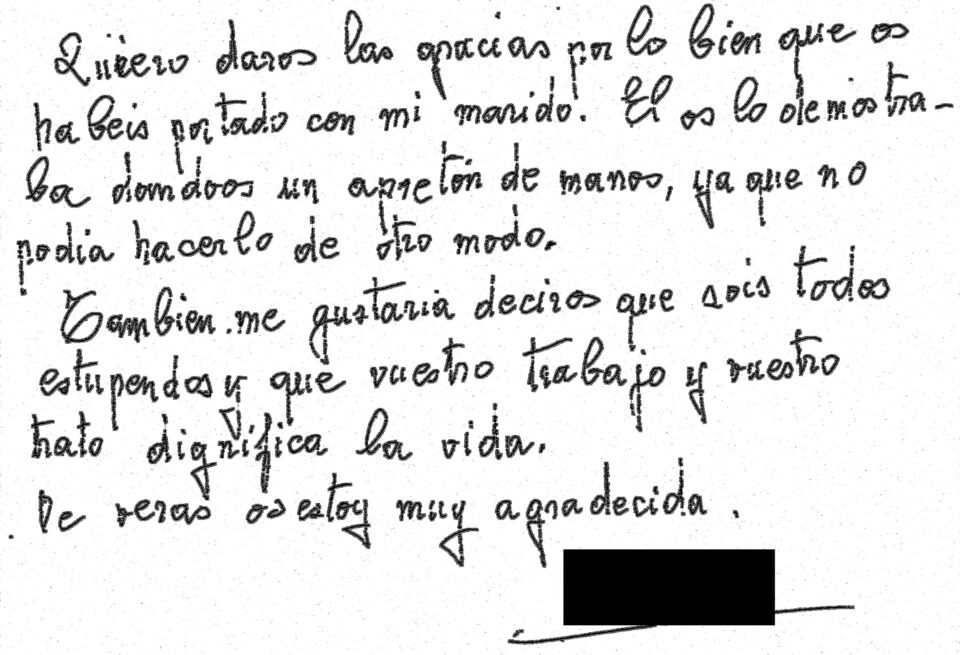 Quiero daros las gracias por lo bien que os
habeis portado con mi marido. El os lo demostra-
ba dandoos un apretón de manos, ya que no
podia hacerlo de otro modo.
Tambien me gustaria deciros que sois todos
estupendos y que vuestro trabajo y vuestro
trato dignifica la vida.
De veras os estoy muy agradecida.